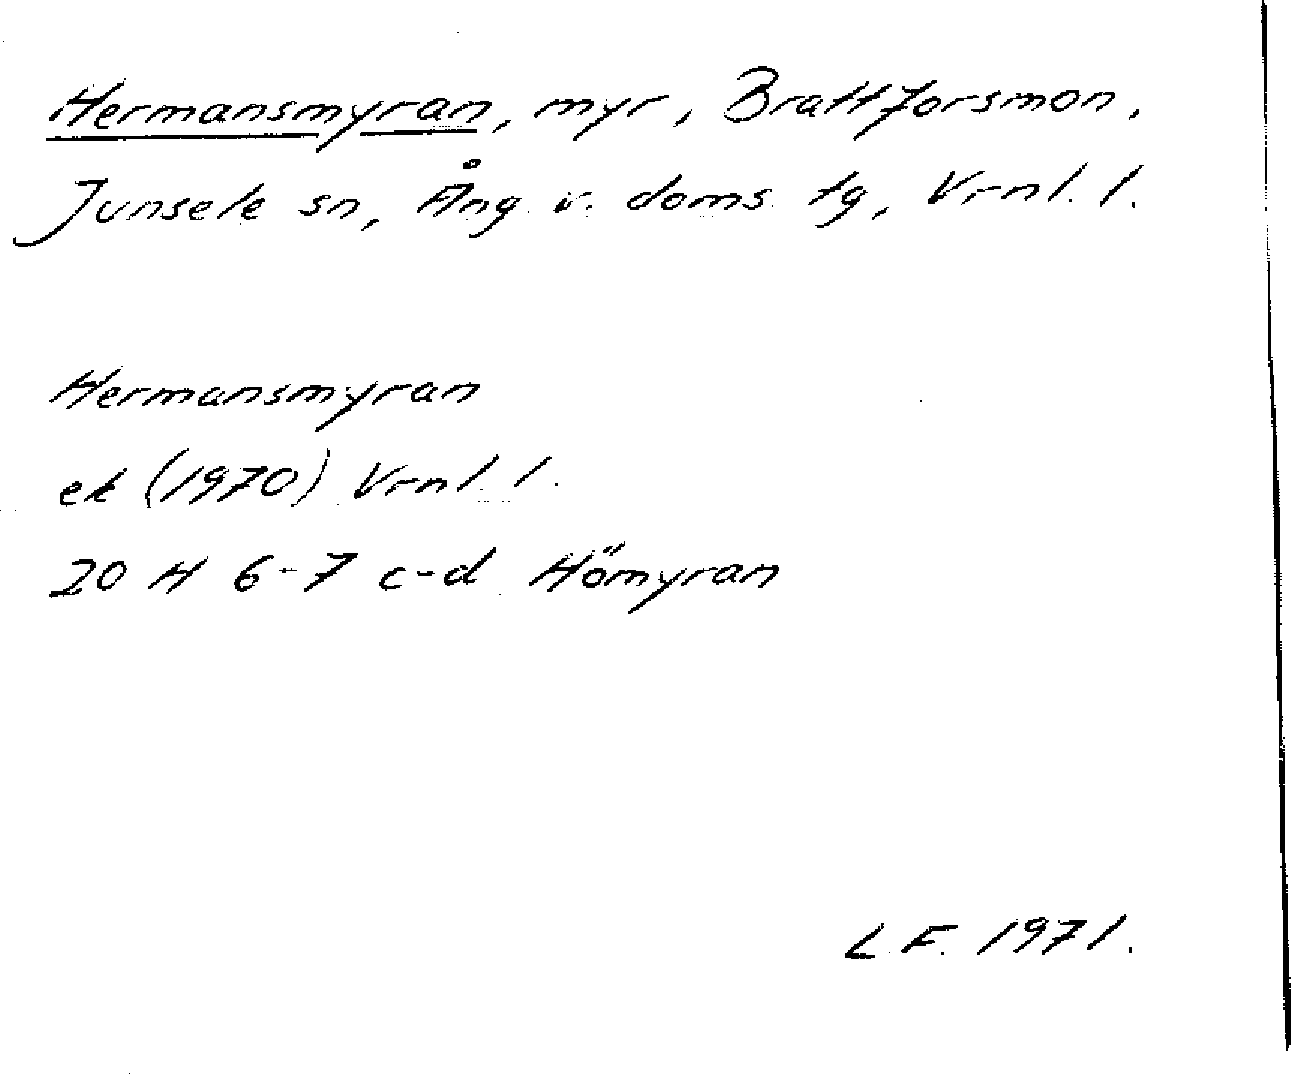 Hermansmyran, myr, Brattforsmon,
Junsele sn, Ång. v. doms. tg, Vrnl. l.
Hermansmyran
ek (1970) Vrnl. l.
20 H 6-7 c-d Hömyran
L.F. 1971.